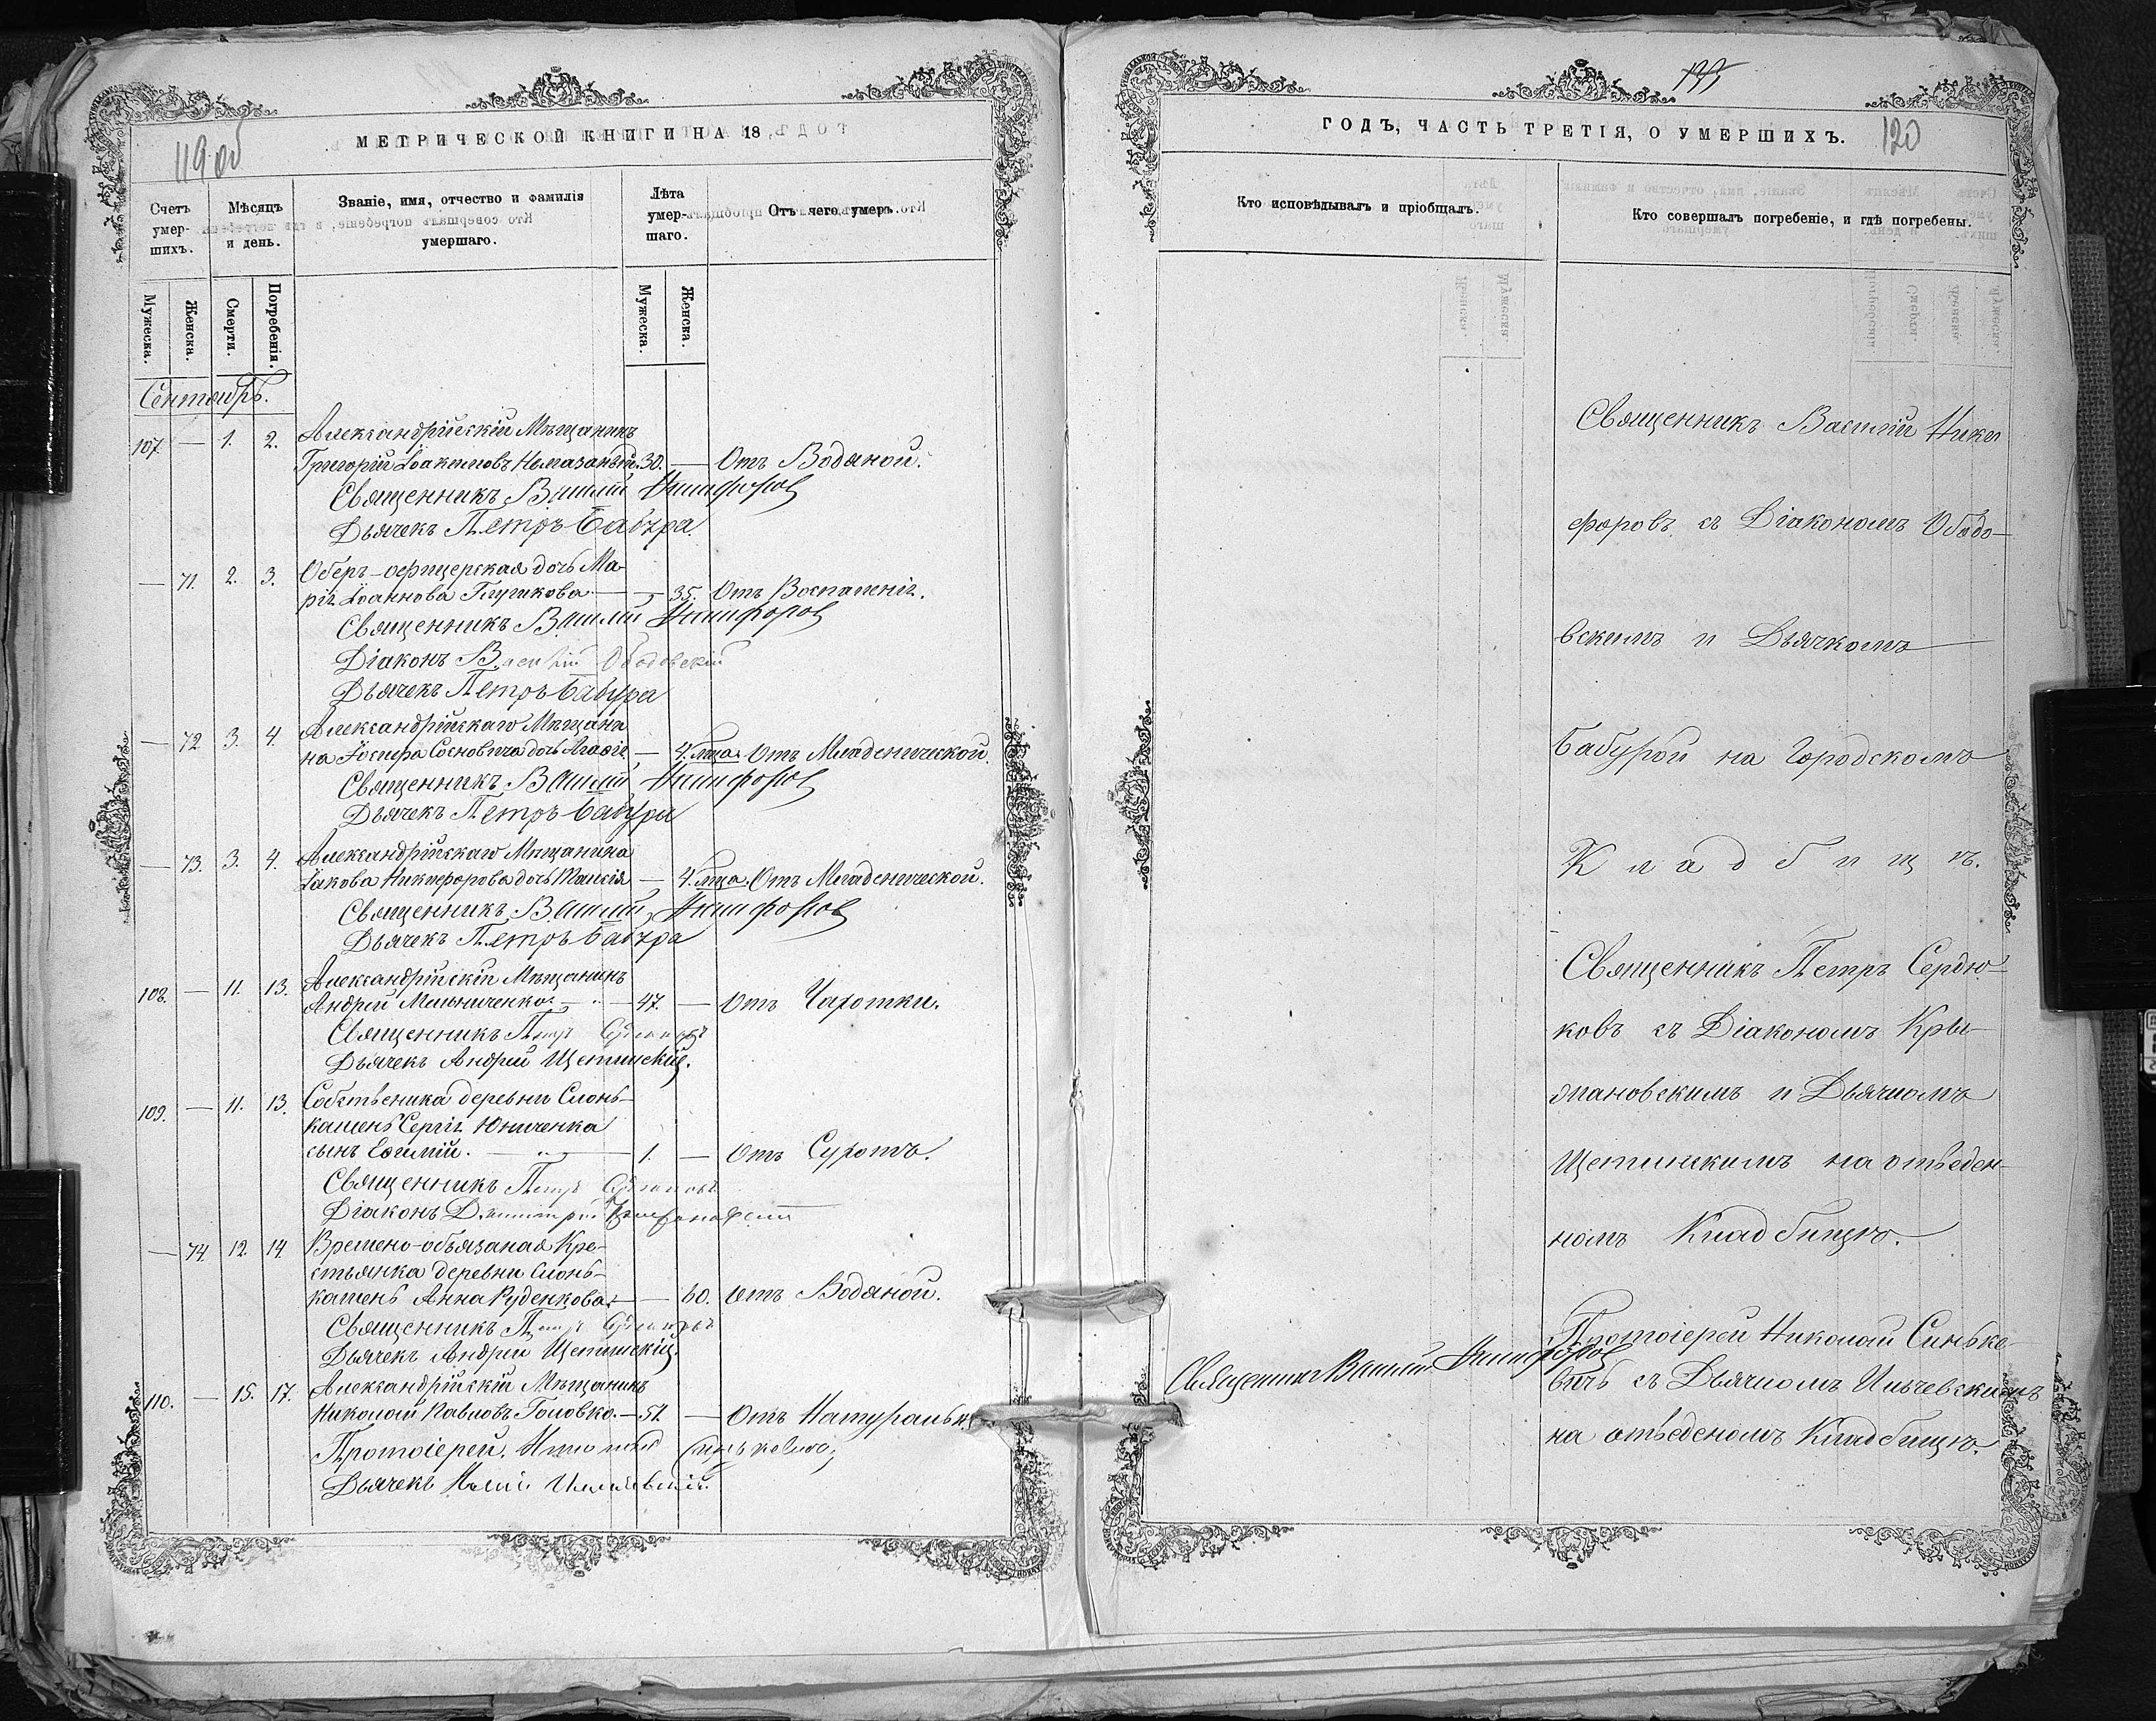 МЕТРИЧЕСКОЙ КНИГИ НА 18
119 об
Счетъ умер-шихъ.
Мѣсяцъ и день.
Званіе, имя, отчество и фамилія умершаго.
Лѣта умер-шаго.
Отъ чего умеръ.
Мужеска.
Женска.
Смерти.
Погребенія.
Мужеска.
Женска.
Сентябрь.
Александрійскій Мѣщанинъ
107. — 1. 2. Григорій Іоакимовъ 30. — Отъ Водяной.
Священникъ Василій Никифоровъ
Дьячекъ Петръ Бабура
Оберъ-офицерская дочь Ма-
— 71. 2. 3. рія Іоаннова — 35. Отъ Воспаленія.
Священникъ Василій Никифоровъ
Діаконъ Василій Ободовскій
Дьячекъ Петръ Бабура
Александрійскаго Мѣщани
— 72 3. 4. на Іосифа Сосновича дочь Агафія — 4. мца. Отъ Младенческой.
Священникъ Василій Никифоровъ
Дьячекъ Петръ Бабура
Александрійскаго Мѣщанина
— 73. 3. 4. Іакова Никифорова дочь Таисія — 4. мца. Отъ Младенческой.
Священникъ Василій Никифоровъ
Дьячекъ Петръ Бабура
Александрійскій Мѣщанинъ
108. — 11. 13. Андрей Мельниченко. — 47. — Отъ Чахотки.
Священникъ Петръ Сердюковъ
Дьячекъ Андрей Щетинскій.
109. — 11. 13. Собственика деревни Слонь-
камень Сергія Юнченка
сынъ Евфимій. — 1. — Отъ Сухотъ.
Священникъ Петръ Сердюковъ
Діаконъ Димитрій
— 74. 12. 14. Времено-обязаная Кре-
стьянка деревни Слонь-
камень Анна Руденкова. — 60. Отъ Водяной.
Священникъ Петръ Сердюковъ
Дьячекъ Андрей Щетинскій.
Александрійскій Мѣщанинъ
110. — 15. 17. Николай Павловъ Головко. — 51. — Отъ Натуральн.
Протоіерей Николай Синькевичъ
Дьячекъ Ильчевскій.
ГОДЪ, ЧАСТЬ ТРЕТІЯ, О УМЕРШИХЪ.
120
Кто исповѣдывалъ и пріобщалъ.
Кто совершалъ погребеніе, и гдѣ погребены.
Священникъ Василій Ники
форовъ съ Діакономъ Ободо-
вскимъ и Дьячкомъ
Бабурой на Городскомъ
Кладбищѣ.
Священникъ Петръ Сердю-
ковъ съ Діакономъ Кры-
жановскимъ и Дьячкомъ
Щетинскимъ на отведен-
номъ Кладбищѣ.
Протоіерей Николай Синьке-
вичъ съ Дьячкомъ Ильчевскимъ
на отведеномъ Кладбищѣ.
Священникъ Василій Никифоровъ